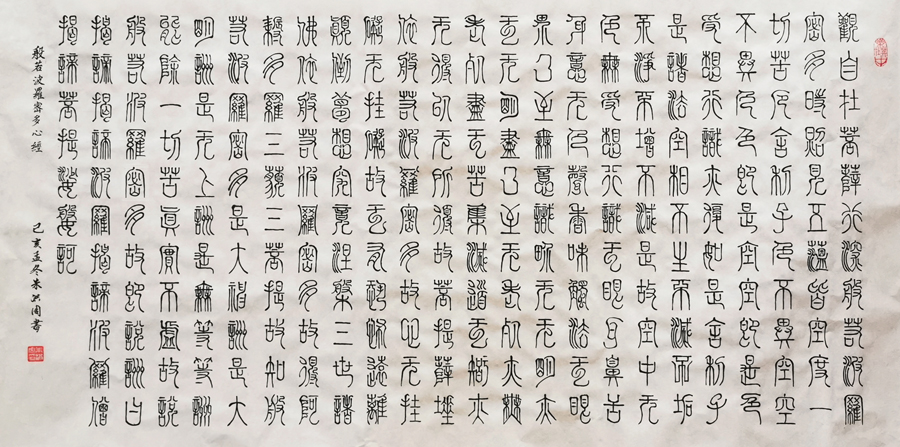 觀自在菩薩行深般若波羅
密多時照見五蘊皆空度一
切苦厄舍利子色不異空空
不異色色即是空空即是色
受想行識亦復如是舍利子
是諸法空相不生不滅不垢
不淨不增不減是故空中无
色無受想行識无眼耳鼻舌
身意无色聲香味觸法无眼
界乃至無意識界无无明亦
无无明盡乃至无老死亦無
老死盡无苦集滅道无智亦
无得以无所得故菩提薩埵
依般若波羅密多故心无挂
礙无挂礙故无有恐怖遠離
顛倒夢想究竟涅槃三世諸
佛依般若波羅密多故得阿
耨多羅三藐三菩提故知般
若波羅密多是大神訓是大
明訓是无上訓是無等等訓
能除一切苦真實不虛故說
般若波羅密多故即說訓曰
揭諦揭諦波羅揭諦波羅僧
揭諦菩提娑婆訶
般若波羅密多心經
己亥孟冬朱書